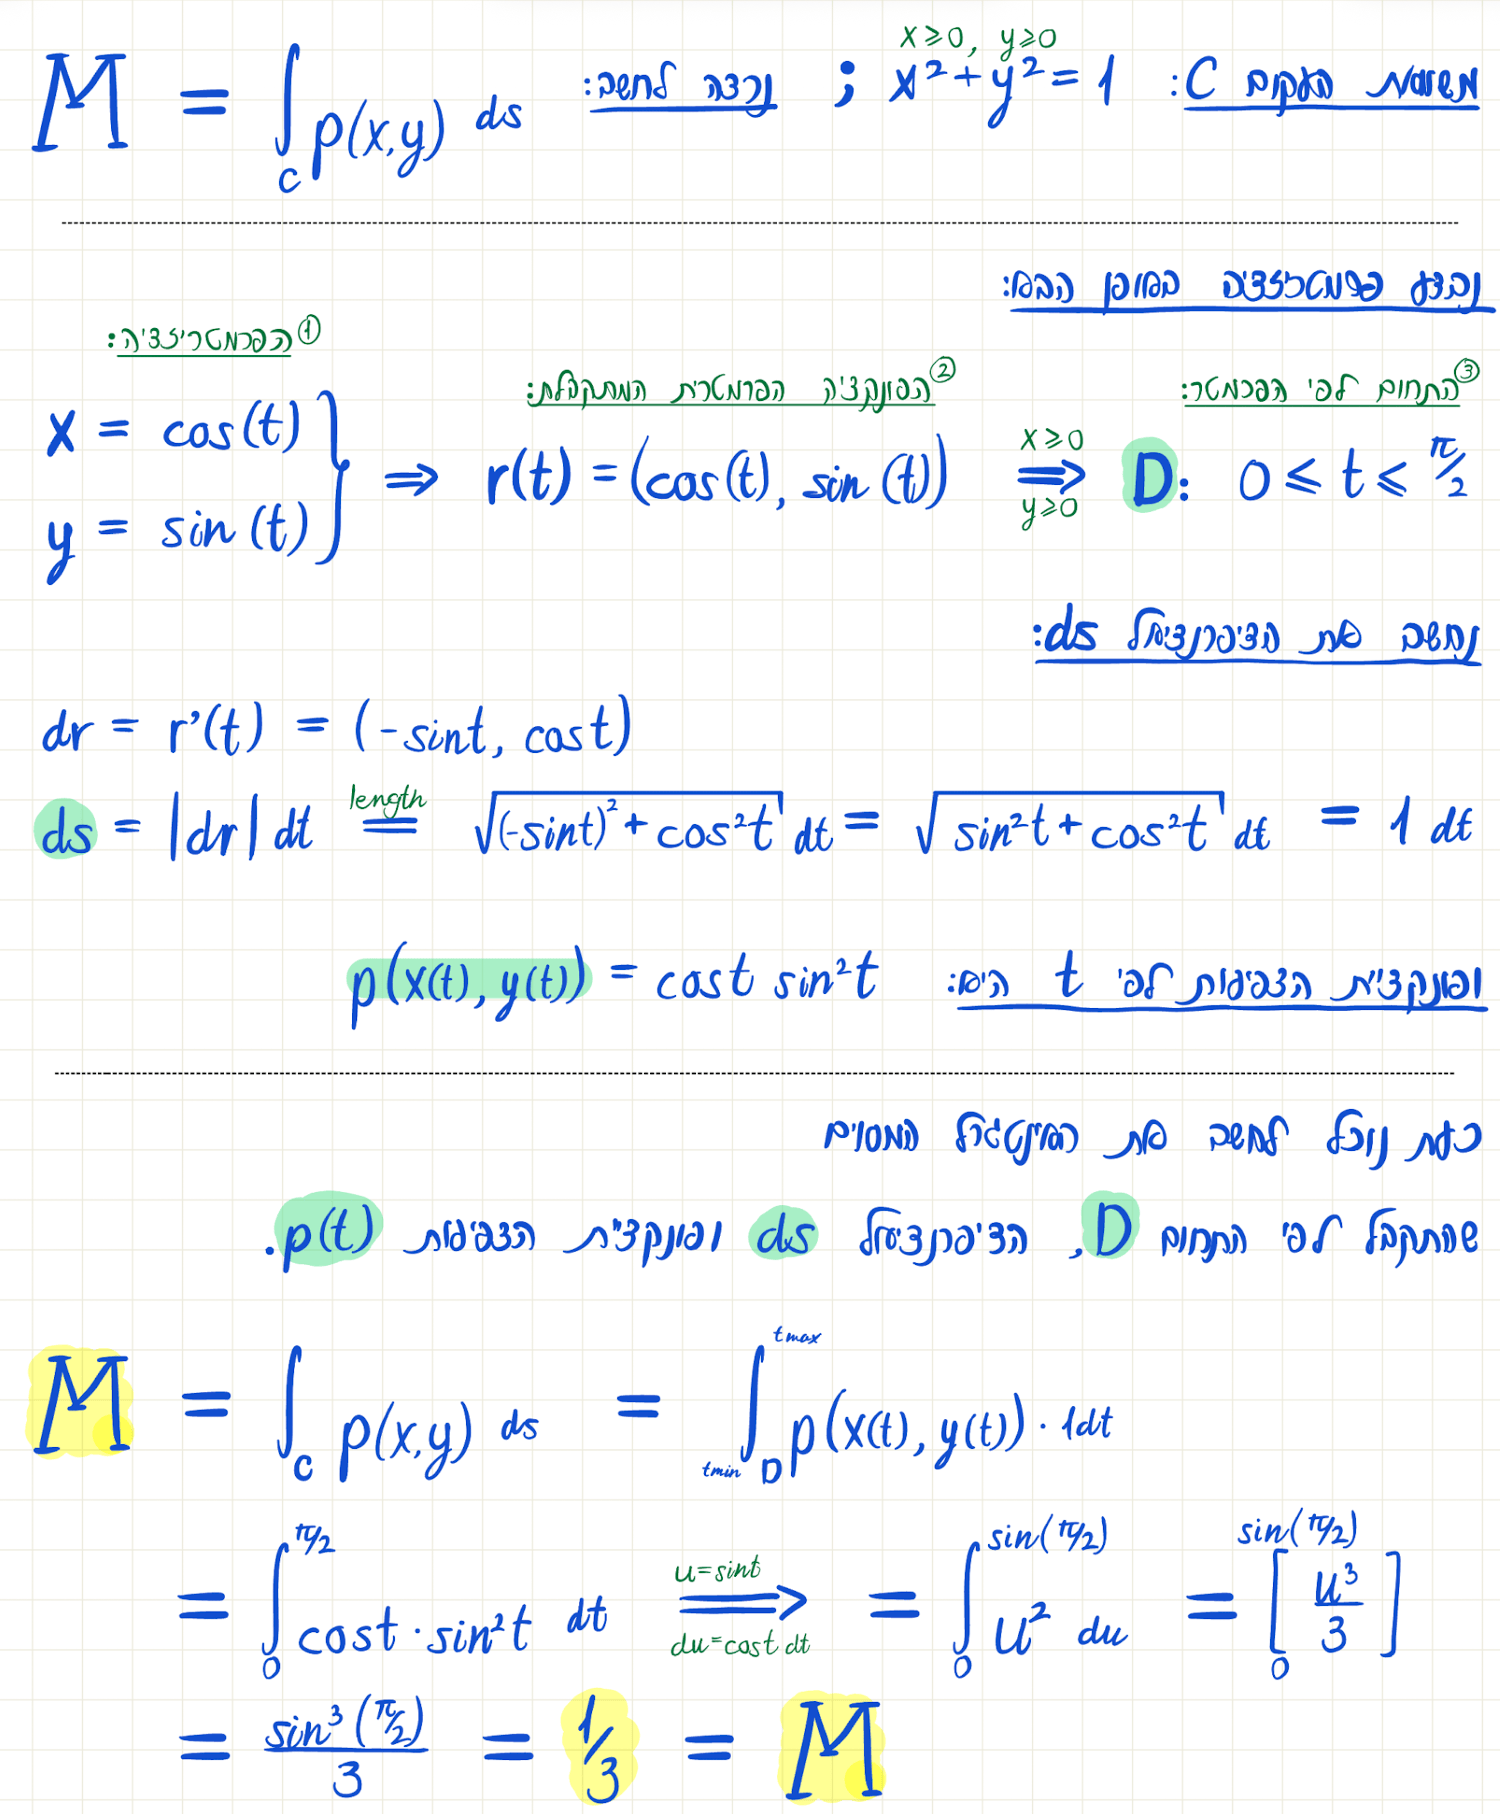 משוואת העקום C: x² + y² = 1 ; נרצה לחשב: M = ∫_C p(x,y) ds
x ≥ 0, y ≥ 0
נבצע פרמטריזציה באופן הבא:
① הפרמטריזציה:
x = cos(t)
y = sin(t)
② הפונקציה הפרמטרית המתקבלת:
⇒ r(t) = (cos(t), sin(t))
③ התחום לפי הפרמטר:
x ≥ 0 ⇒ y ≥ 0 D: 0 ≤ t ≤ π/2
נחשב את הדיפרנציאל ds:
dr = r'(t) = (-sint, cost)
ds = |dr| dt =(length) √((-sint)² + cos²t) dt = √(sin²t + cos²t) dt = 1 dt
ופונקציית הצפיפות לפי t היא: p(x(t), y(t)) = cost sin²t
כעת נוכל לחשב את האינטגרל המסוים
שהתקבל לפי התחום D, הדיפרנציאל ds ופונקציית הצפיפות p(t).
M = ∫_C p(x,y) ds = ∫_D tmin tmax p(x(t), y(t)) · 1dt
= ∫_0^{π/2} cost · sin²t dt ⇒ u=sint du=cost dt = ∫_0^{sin(π/2)} u² du = [u³/3]_0^{sin(π/2)}
= sin³(π/2)/3 = 1/3 = M